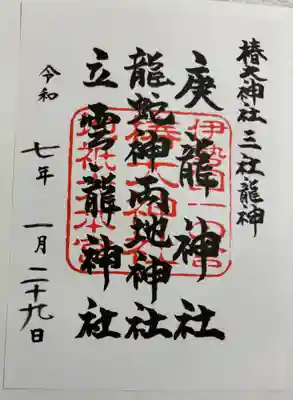 椿大神社 三社龍神
庚龍神社
龍蛇神両地神社
立雲龍神社
令和七年 一月二十九日